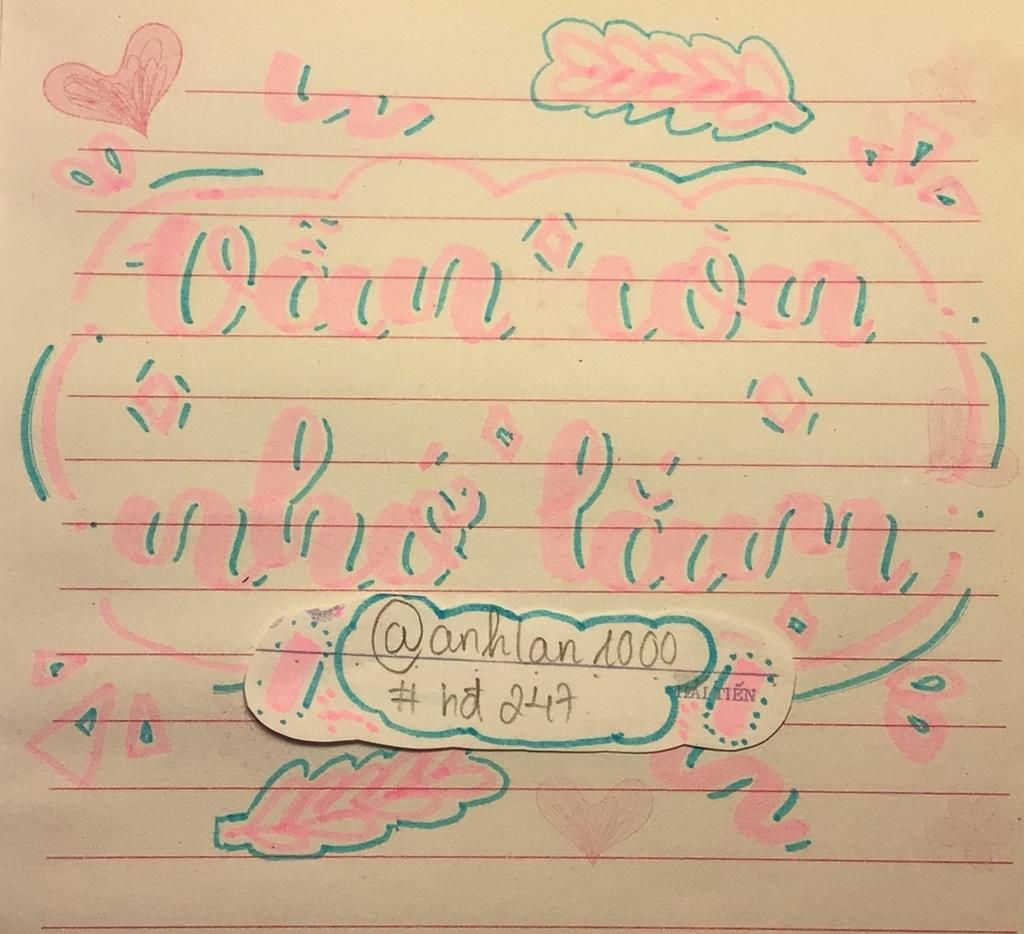 Vẫn còn
nhớ lắm
@anhlan1000
# hđ 247
HẢI TIẾN